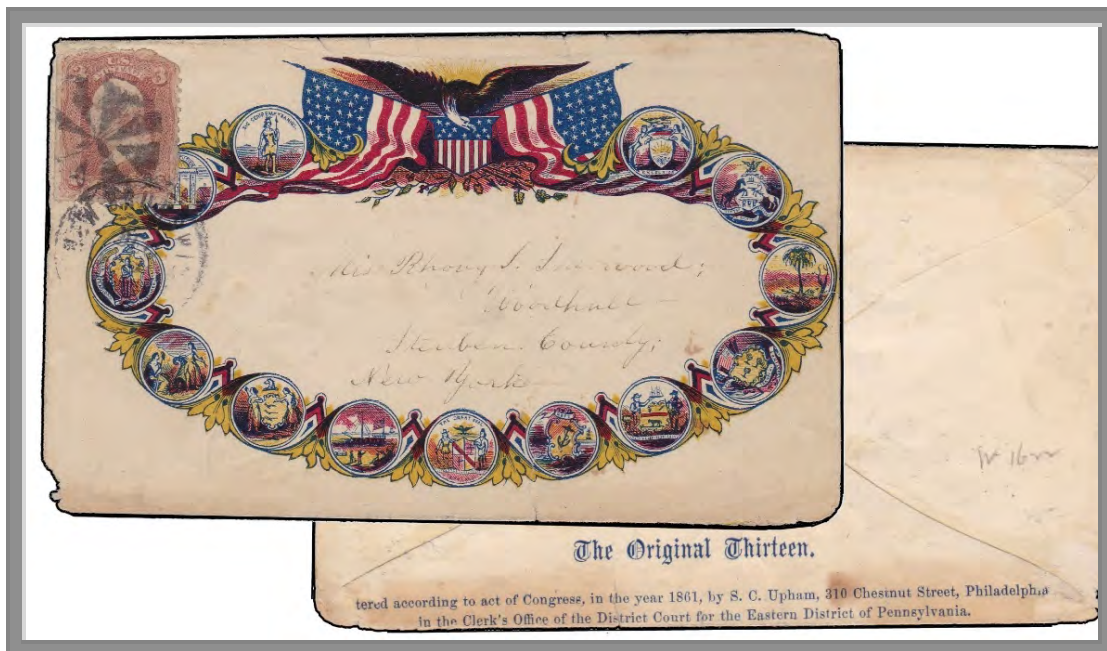 U.S.
POSTAGE
3 3
EXCELSIOR
HOPE
WIS
Miss
Woodhull
Steuben County;
New York
The Original Thirteen.
tered according to act of Congress, in the year 1861, by S. C. Upham, 310 Chestnut Street, Philadelphia
in the Clerk's Office of the District Court for the Eastern District of Pennsylvania.